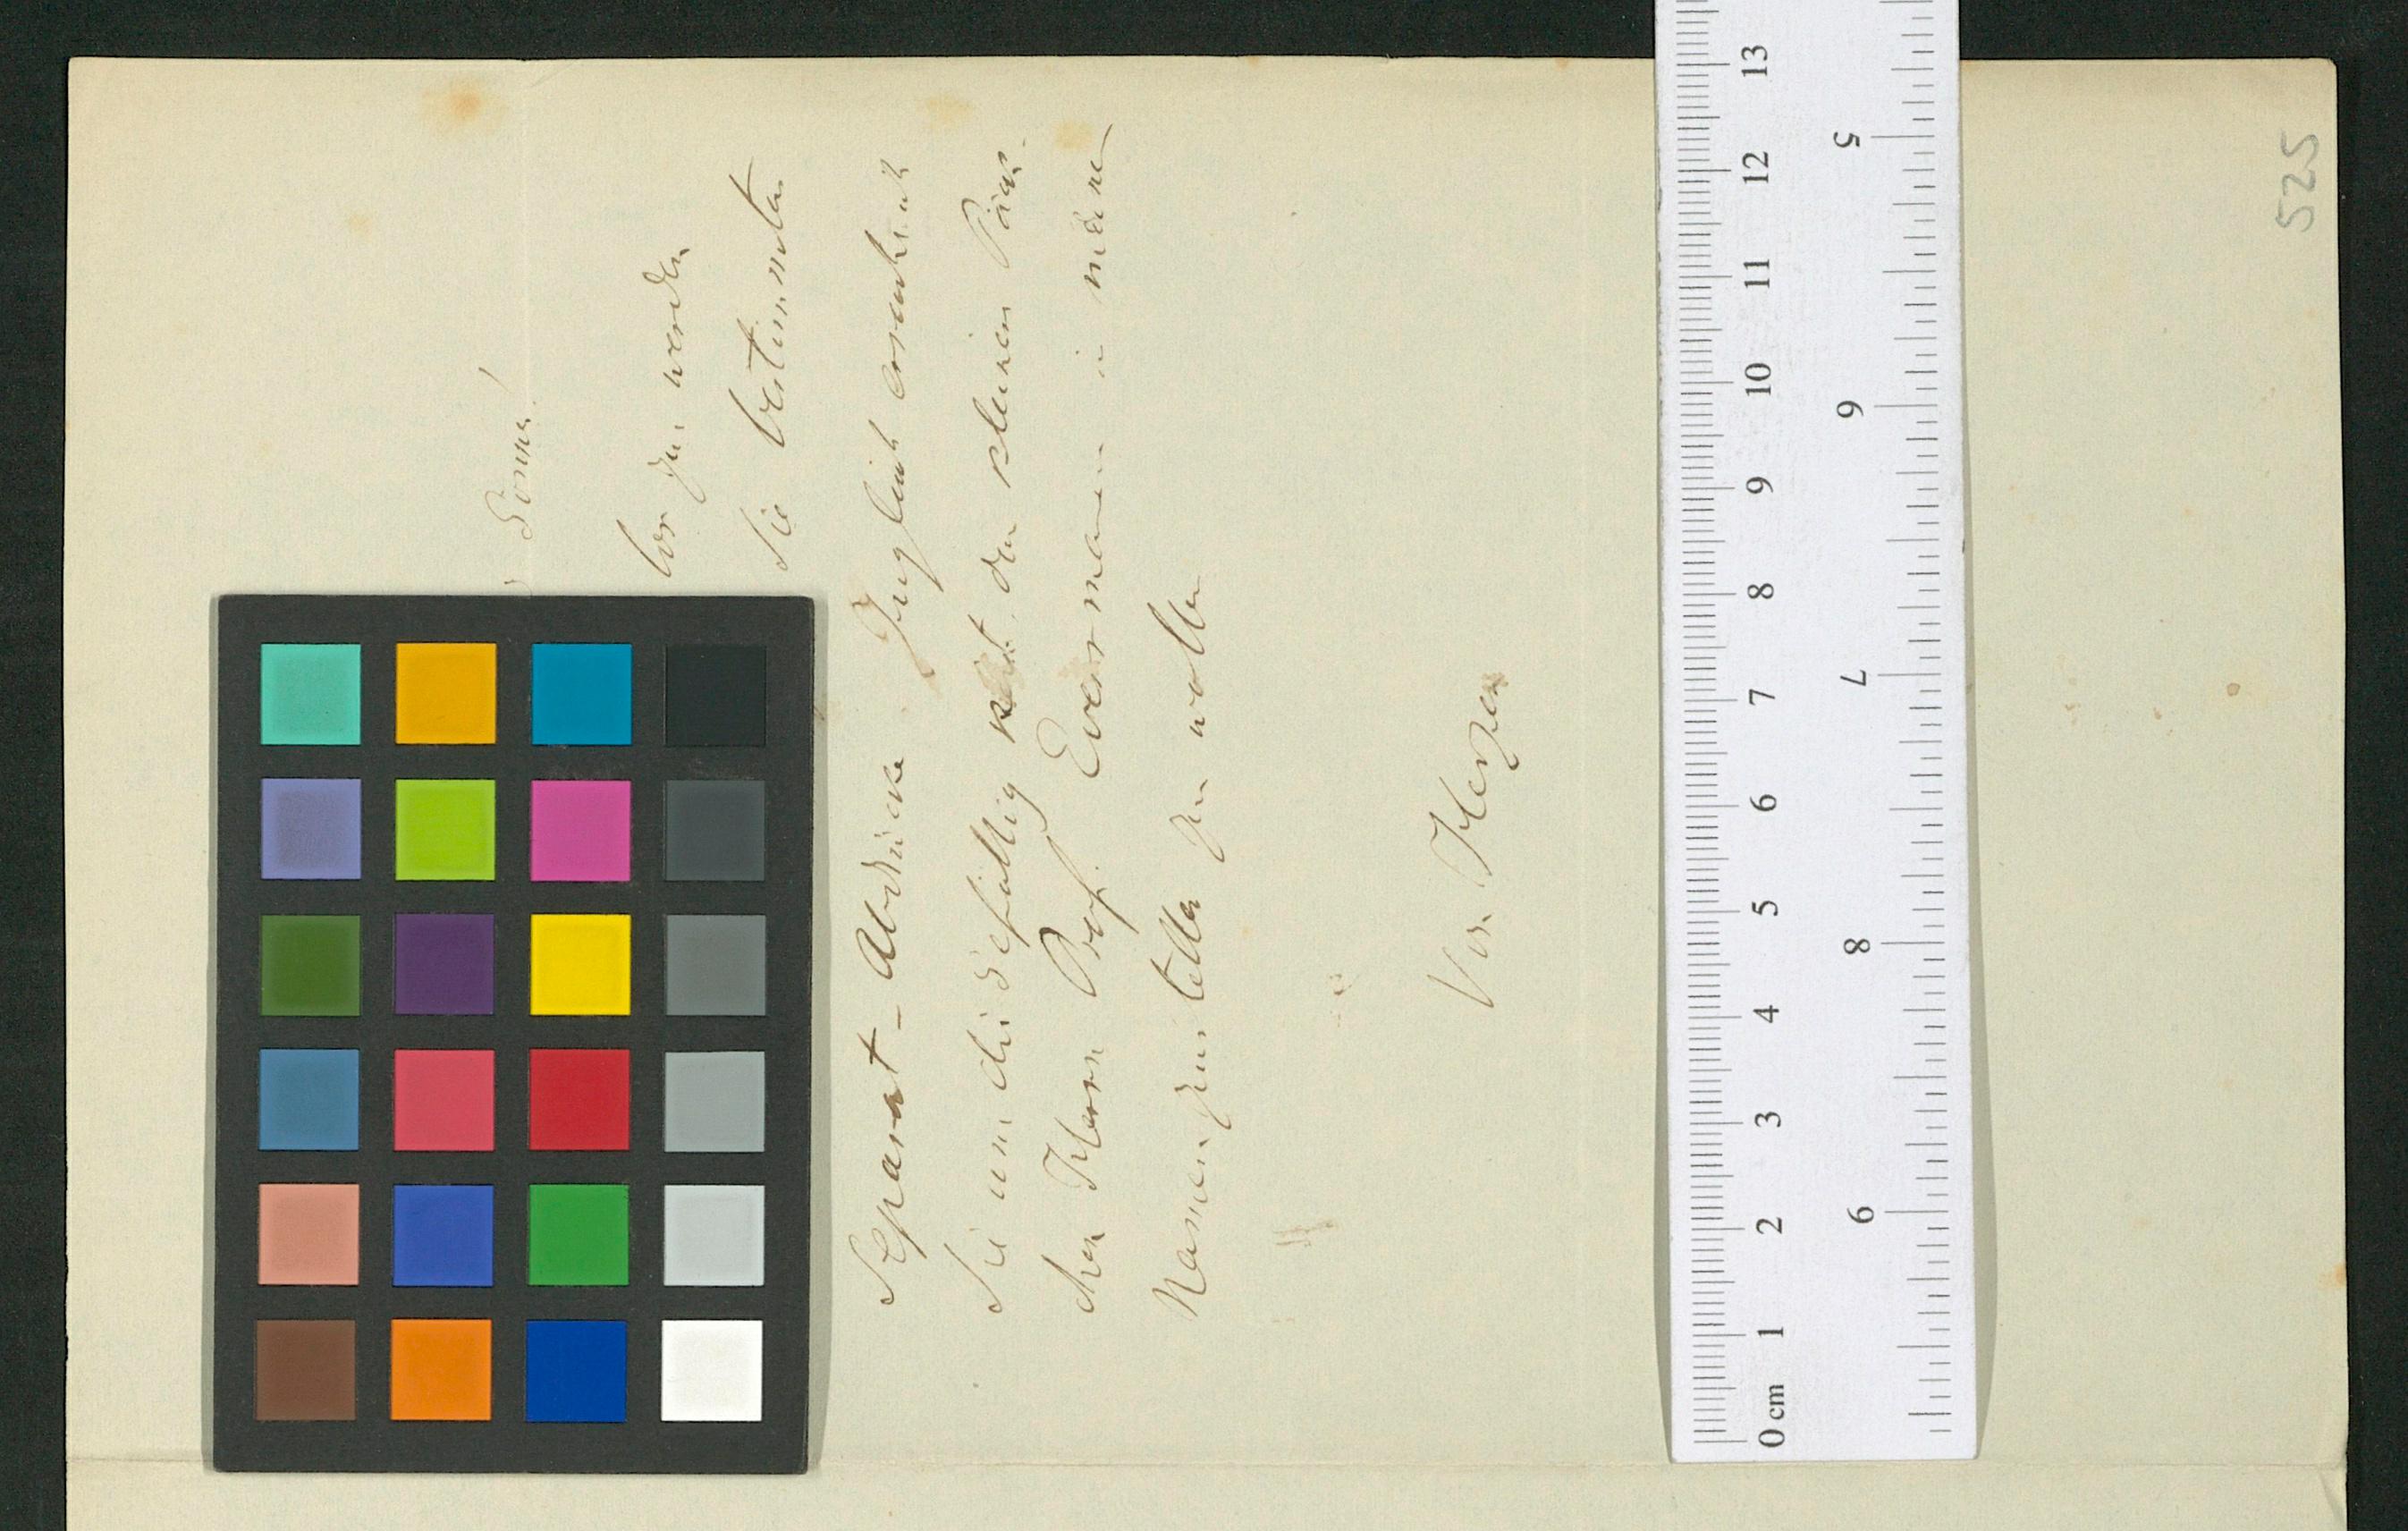 Gönner!
vor zu werden
Sie bestimmten
Separat-Abdrücke Zugleich ersuche ich
Sie um die Gefällig keit den kleinen Päck-
chen Herrn Prof. Evermann in meinem
Namen zustellen zu wollen
Von Herzen
525
0 cm 1 2 3 4 5 6 7 8 9 10 11 12 13
5 6 7 8 9